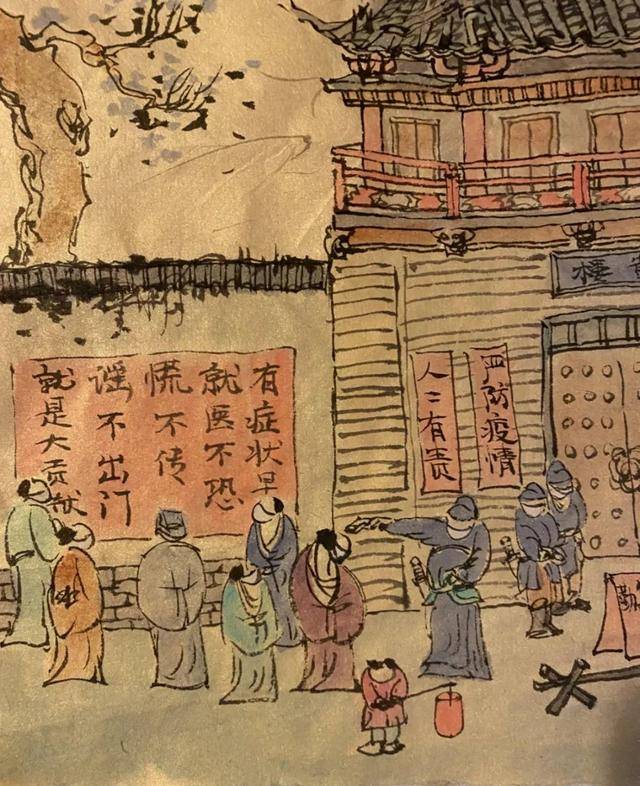 楼
严防疫情
人二有责
有症状早
就医不恐
慌不传
谣不出门
就是大贡献